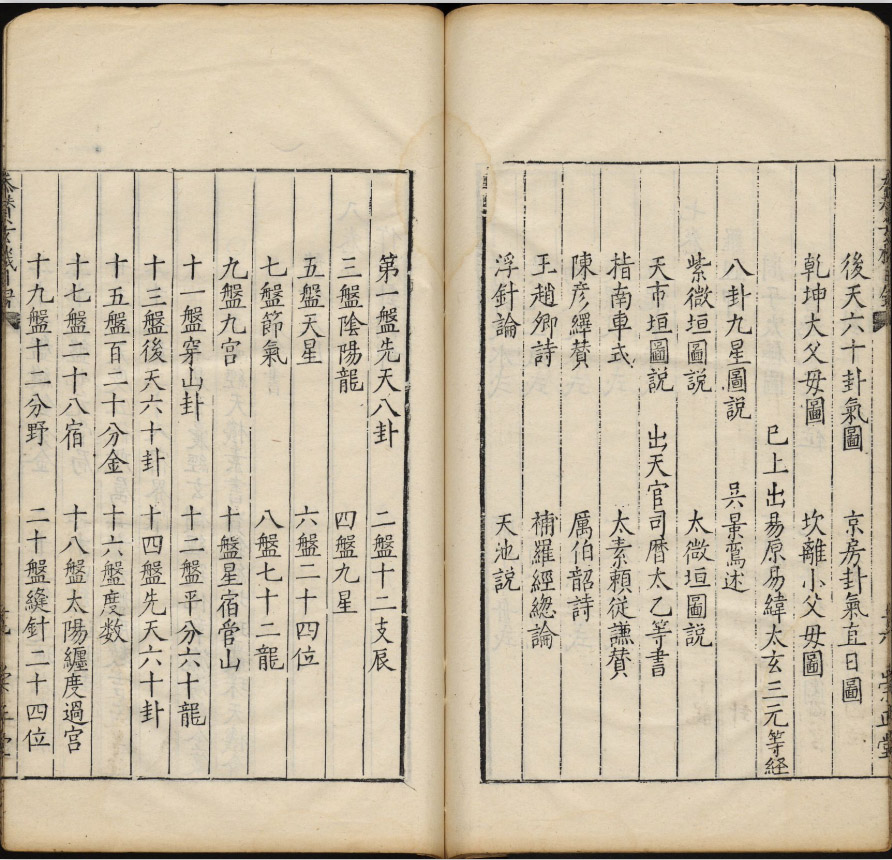 後天六十卦氣圖　京房卦氣直日圖
乾坤大父毋圖　坎離小父毋圖
已上出易原易緯太玄三元等経
八卦九星圖説　吳景鸞述
紫微垣圖説　太微垣圖説
天市垣圖説　出天官司曆太乙等書
指南車式　太素賴從謙賛
陳彦繹賛　厲伯韶詩
王趙卿詩　補羅經緫論
浮針論　天池説
第一盤先天八卦　二盤十二支辰
三盤陰陽龍　四盤九星
五盤天星　六盤二十四位
七盤節氣　八盤七十二龍
九盤九宫　十盤星宿管山
十一盤穿山卦　十二盤平分六十龍
十三盤後天六十卦　十四盤先天六十卦
十五盤百二十分金　十六盤度数
十七盤二十八宿　十八盤太陽纏度過宫
十九盤十二分野　二十盤縫針二十四位